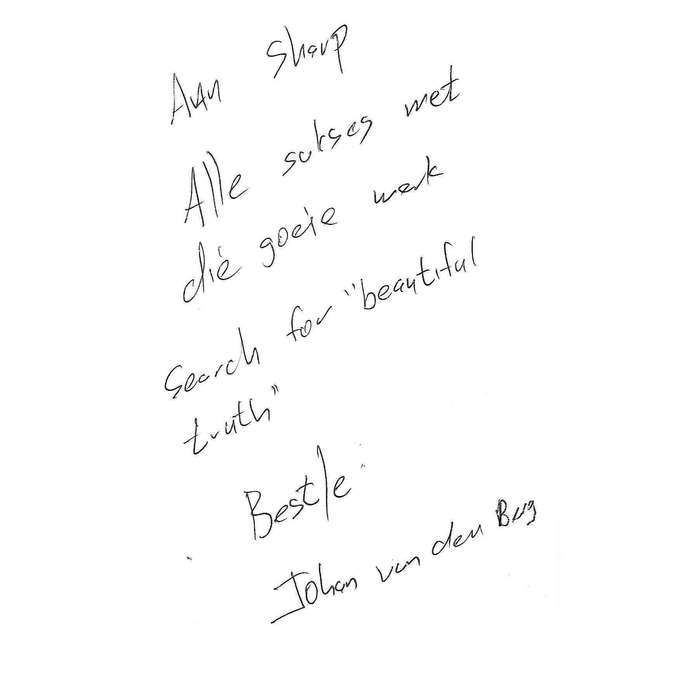 Aan Sharp
Alle sukses met
die goeie werk
Search for "beautiful
truth"
Beste
Johan van den Berg